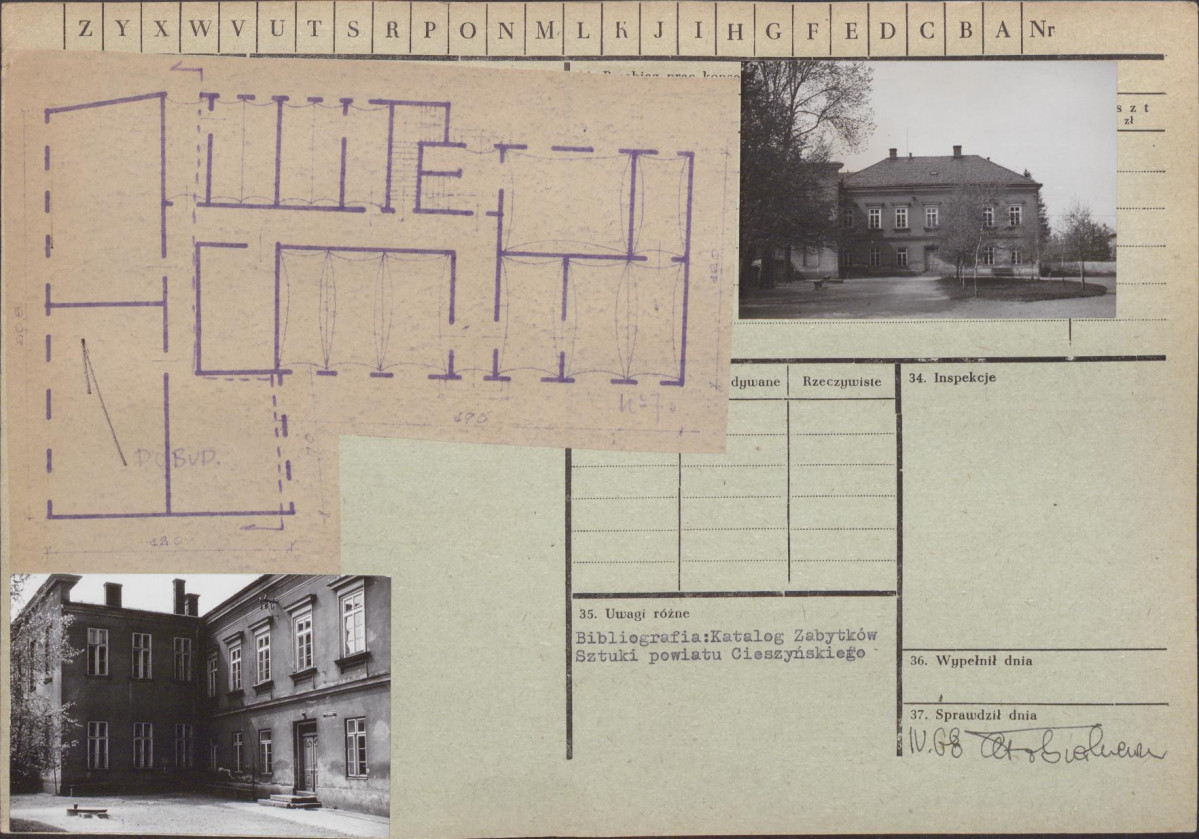 Z Y X W V U T S R P O N M L K J I H G F E D C B A Nr
szt
zł
DOBUD.
dywane
Rzeczywiste
34. Inspekcje
35. Uwagi różne
Bibliografia:Katalog Zabytków
Sztuki powiatu Cieszyńskiego
36. Wypełnił dnia
37. Sprawdził dnia
IV.68